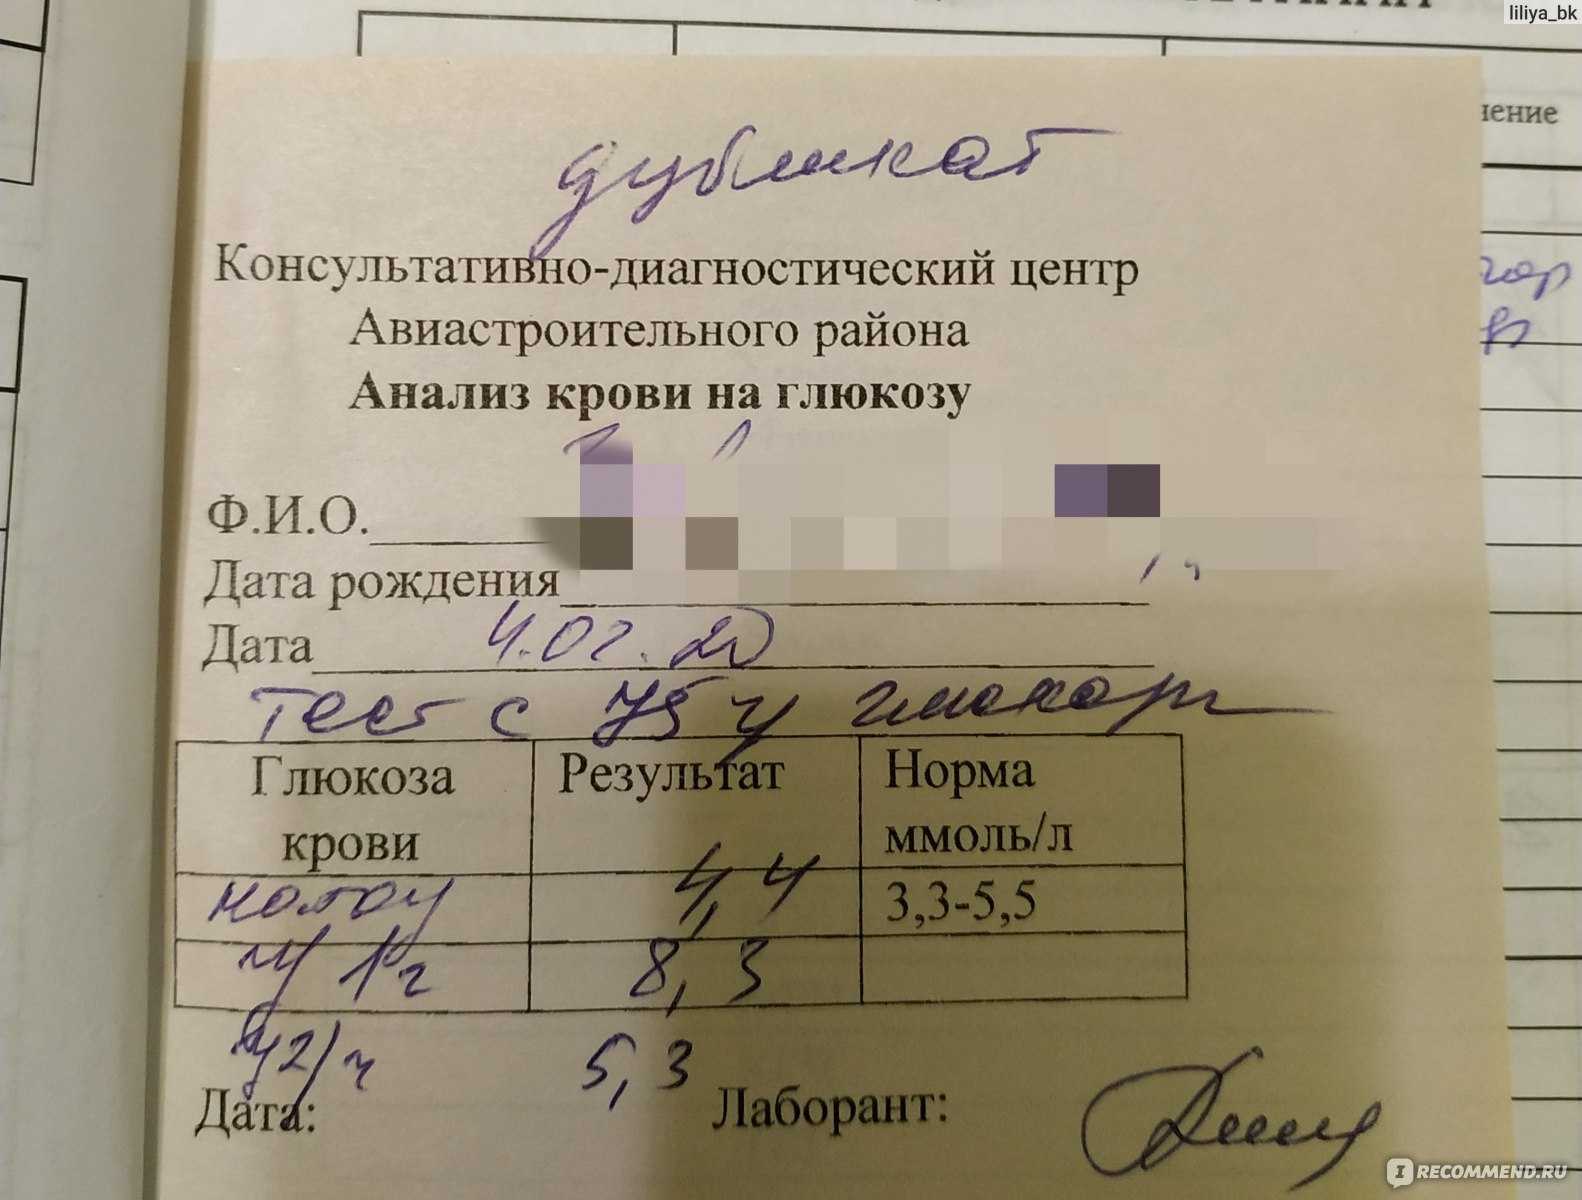 liliya_bk
чение
дубликат
Консультативно-диагностический центр
Авиастроительного района
Анализ крови на глюкозу
Ф.И.О.
Дата рождения
Дата 4.02.20
тест с 75 г глюкозы
Глюкоза крови Результат Норма ммоль/л
натощ 4,4 3,3-5,5
ч/з 1 ч 8,3
ч/з 2 ч 5,3
Дата: Лаборант:
IRECOMMEND.RU